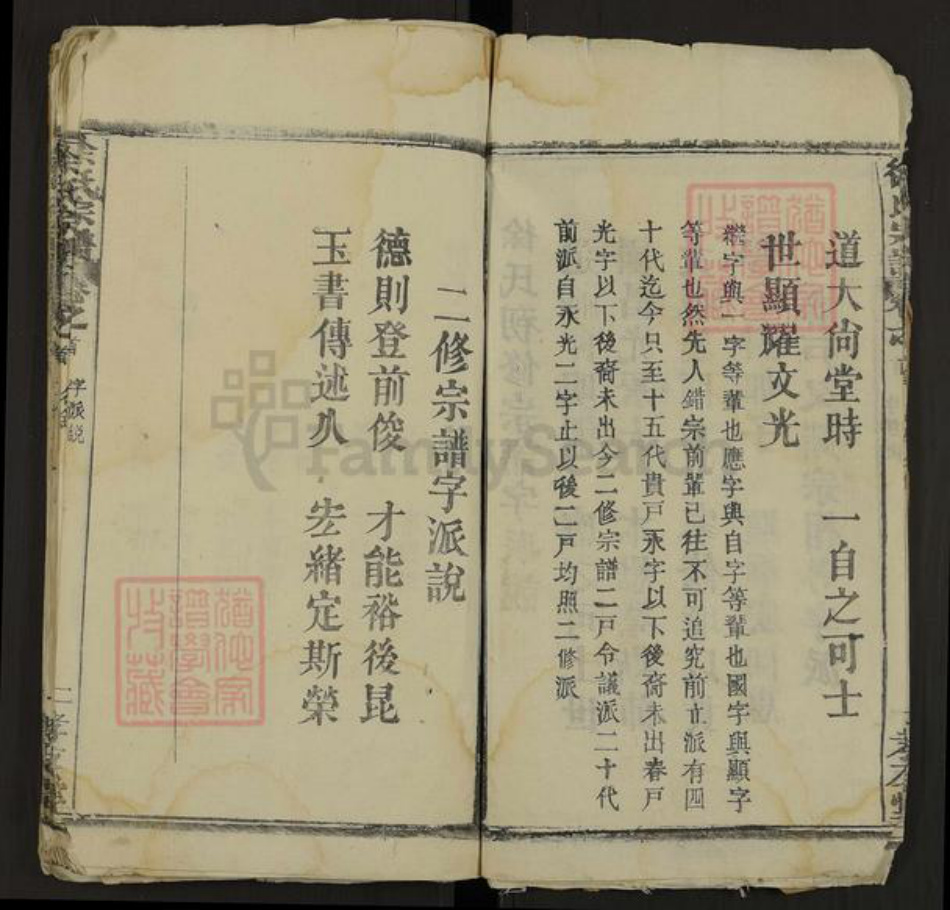 道大尙堂時　一自之可士
世顯耀文光
繼字與一字等輩也應字與自字等輩也國字與顯字
等輩也然先人錯宗前輩已往不可追究前立派有四
十代迄今只至十五代貴戸永字以下後裔未出春戸
光字以下後裔未出今二修宗譜二戸令議派二十代
前派自永光二字止以後二戸均照二修派
二修宗譜字派說
德則登前俊　才能裕後昆
玉書傳述久　宏緒定斯榮
氏宗譜卷之首
字派說
二
FamilySearch